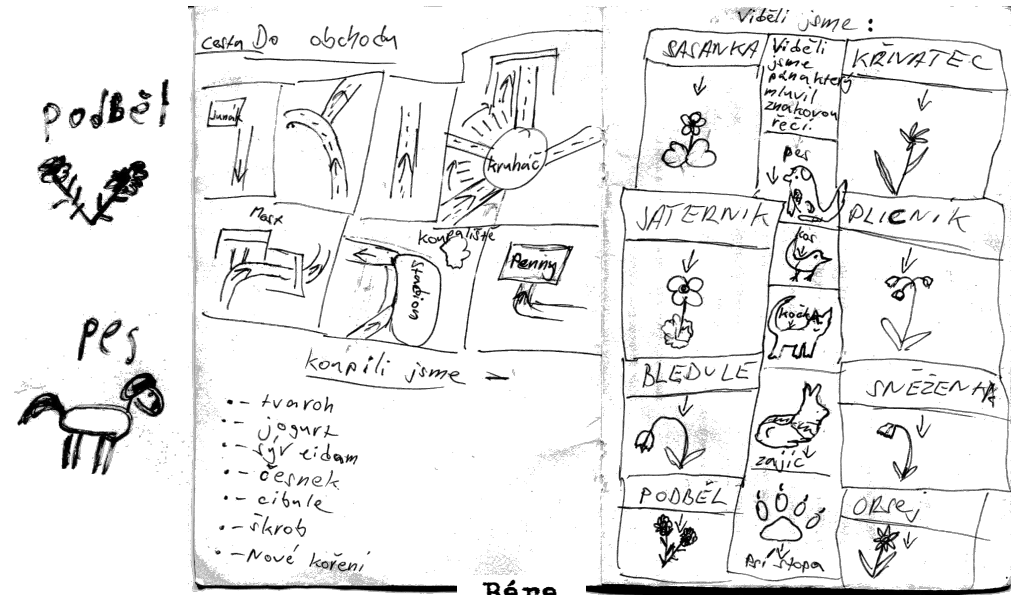 podběl
pes
cesta Do obchodu
Junák
kruháč
Most
Stadion
koupaliště
Penny
koupili jsme
- tvaroh
- jogurt
- sýr eidam
- česnek
- cibule
- škrob
- Nové koření
Viděli jsme :
SASANKA
Viděli
jsme
pána který
mluvil
znakovou
řečí.
KŘIVATEC
pes
JATERNIK
kos
PLICNÍK
kočka
BLEDULE
SNĚŽENKA
zajíc
PODBĚL
ORSEJ
Psí stopa